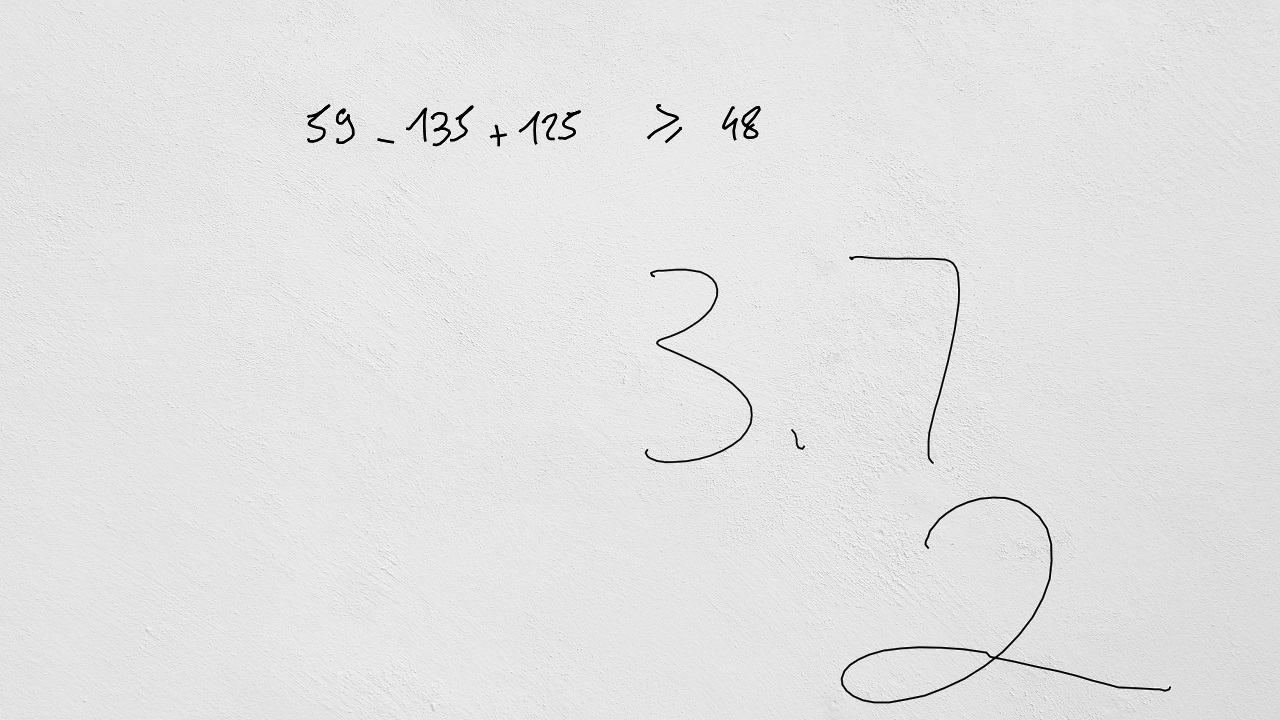 59 - 135 + 125 ⩾ 48
3.7
2